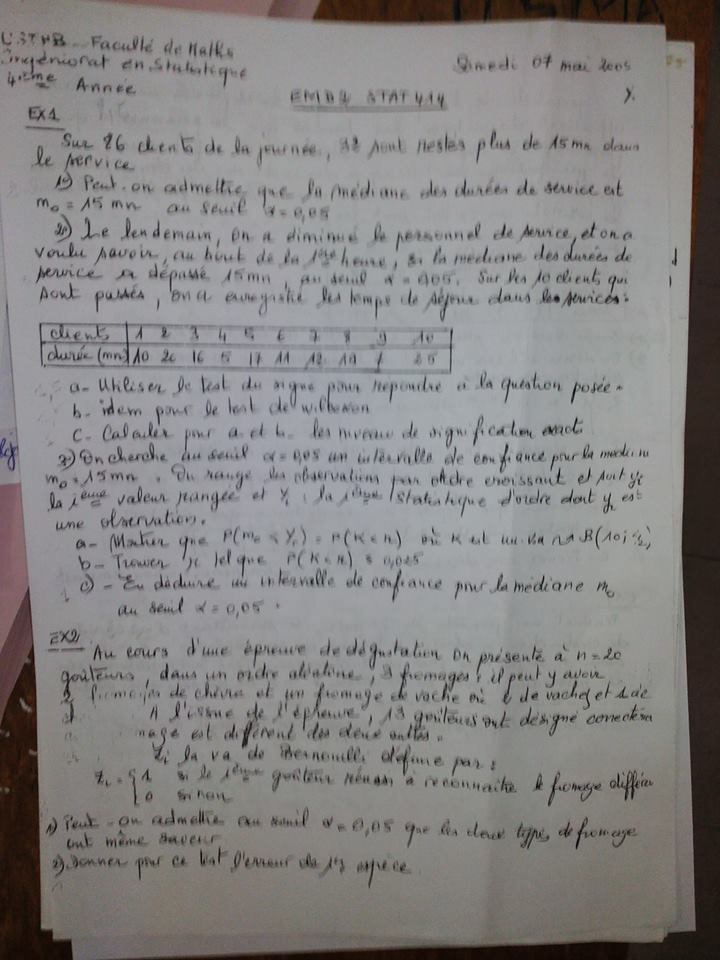 U.S.T.H.B - Faculté de Maths
Ingéniorat en Statistique
4ième Année
Samedi 07 mai 2005
EMD2 STAT 414
EX1
Sur 26 clients de la journée, sont restés plus de 15 mn dans
le service
1°) Peut-on admettre que la médiane des durées de service est
m0 = 15 mn au seuil α = 0,05
2°) Le lendemain, on a diminué le personnel de service, et on a
voulu savoir, au bout de la 1ère heure, si la médiane des durées de
service a dépassé 15mn, au seuil α = 0,05. Sur les 10 clients qui
sont passés, on a enregistré les temps de séjour dans les services:
clients 1 2 3 4 5 6 7 8 9 10
durée (mn) 10 20 16 5 17 11 12 19 25
a- Utiliser le test du signe pour répondre à la question posée.
b- idem pour le test de wilcoxon
c- Calculer pour a et b les niveaux de signification exact
3°) On cherche au seuil α = 0,05 un intervalle de confiance pour la
m0 = 15mn. On range les observations par ordre croissant et soit yi
la ième valeur rangée et Yi la ième statistique d'ordre dont yi est
une observation.
a- Montrer que P(m0 < Yr) = P(K < r) où K est un va ~ B(10; ½)
b- Trouver r tel que P(K < r) ≤ 0,025
c)- En déduire un intervalle de confiance pour la médiane m0
au seuil α = 0,05.
EX2
Au cours d'une épreuve de dégustation on présente à n = 20
goûteurs, dans un ordre aléatoire, 3 fromages: il peut y avoir
2 fromages de chèvre et un fromage de vache où 2 de vaches et 1 de
A l'issue de l'épreuve, 13 goûteurs ont désigné
est différent des deux autres.
Zi la va de Bernoulli définie par:
Zi = { 1 si le ième goûteur réussi à reconnaitre le fromage
0 si non
1) Peut-on admettre au seuil α = 0,05 que les deux types de fromage
ont même saveur
2) Donner pour ce test l'erreur de 1re espèce.